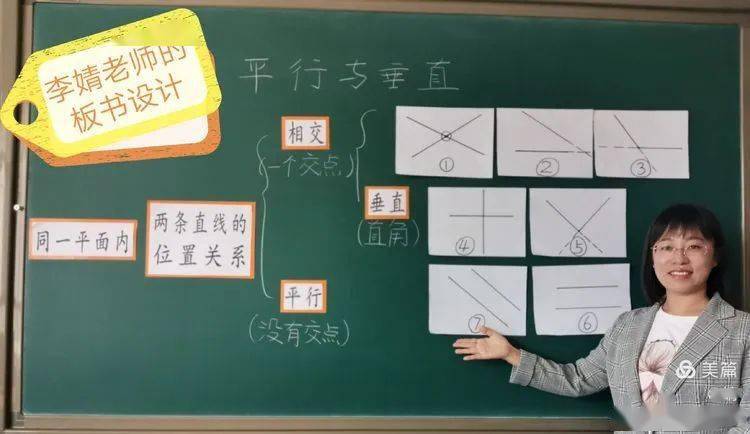 李婧老师的
板书设计
平行与垂直
相交
(一个交点)
①
②
③
垂直
(直角)
④
⑤
同一平面内
两条直线的
位置关系
平行
(没有交点)
⑦
⑥
美篇